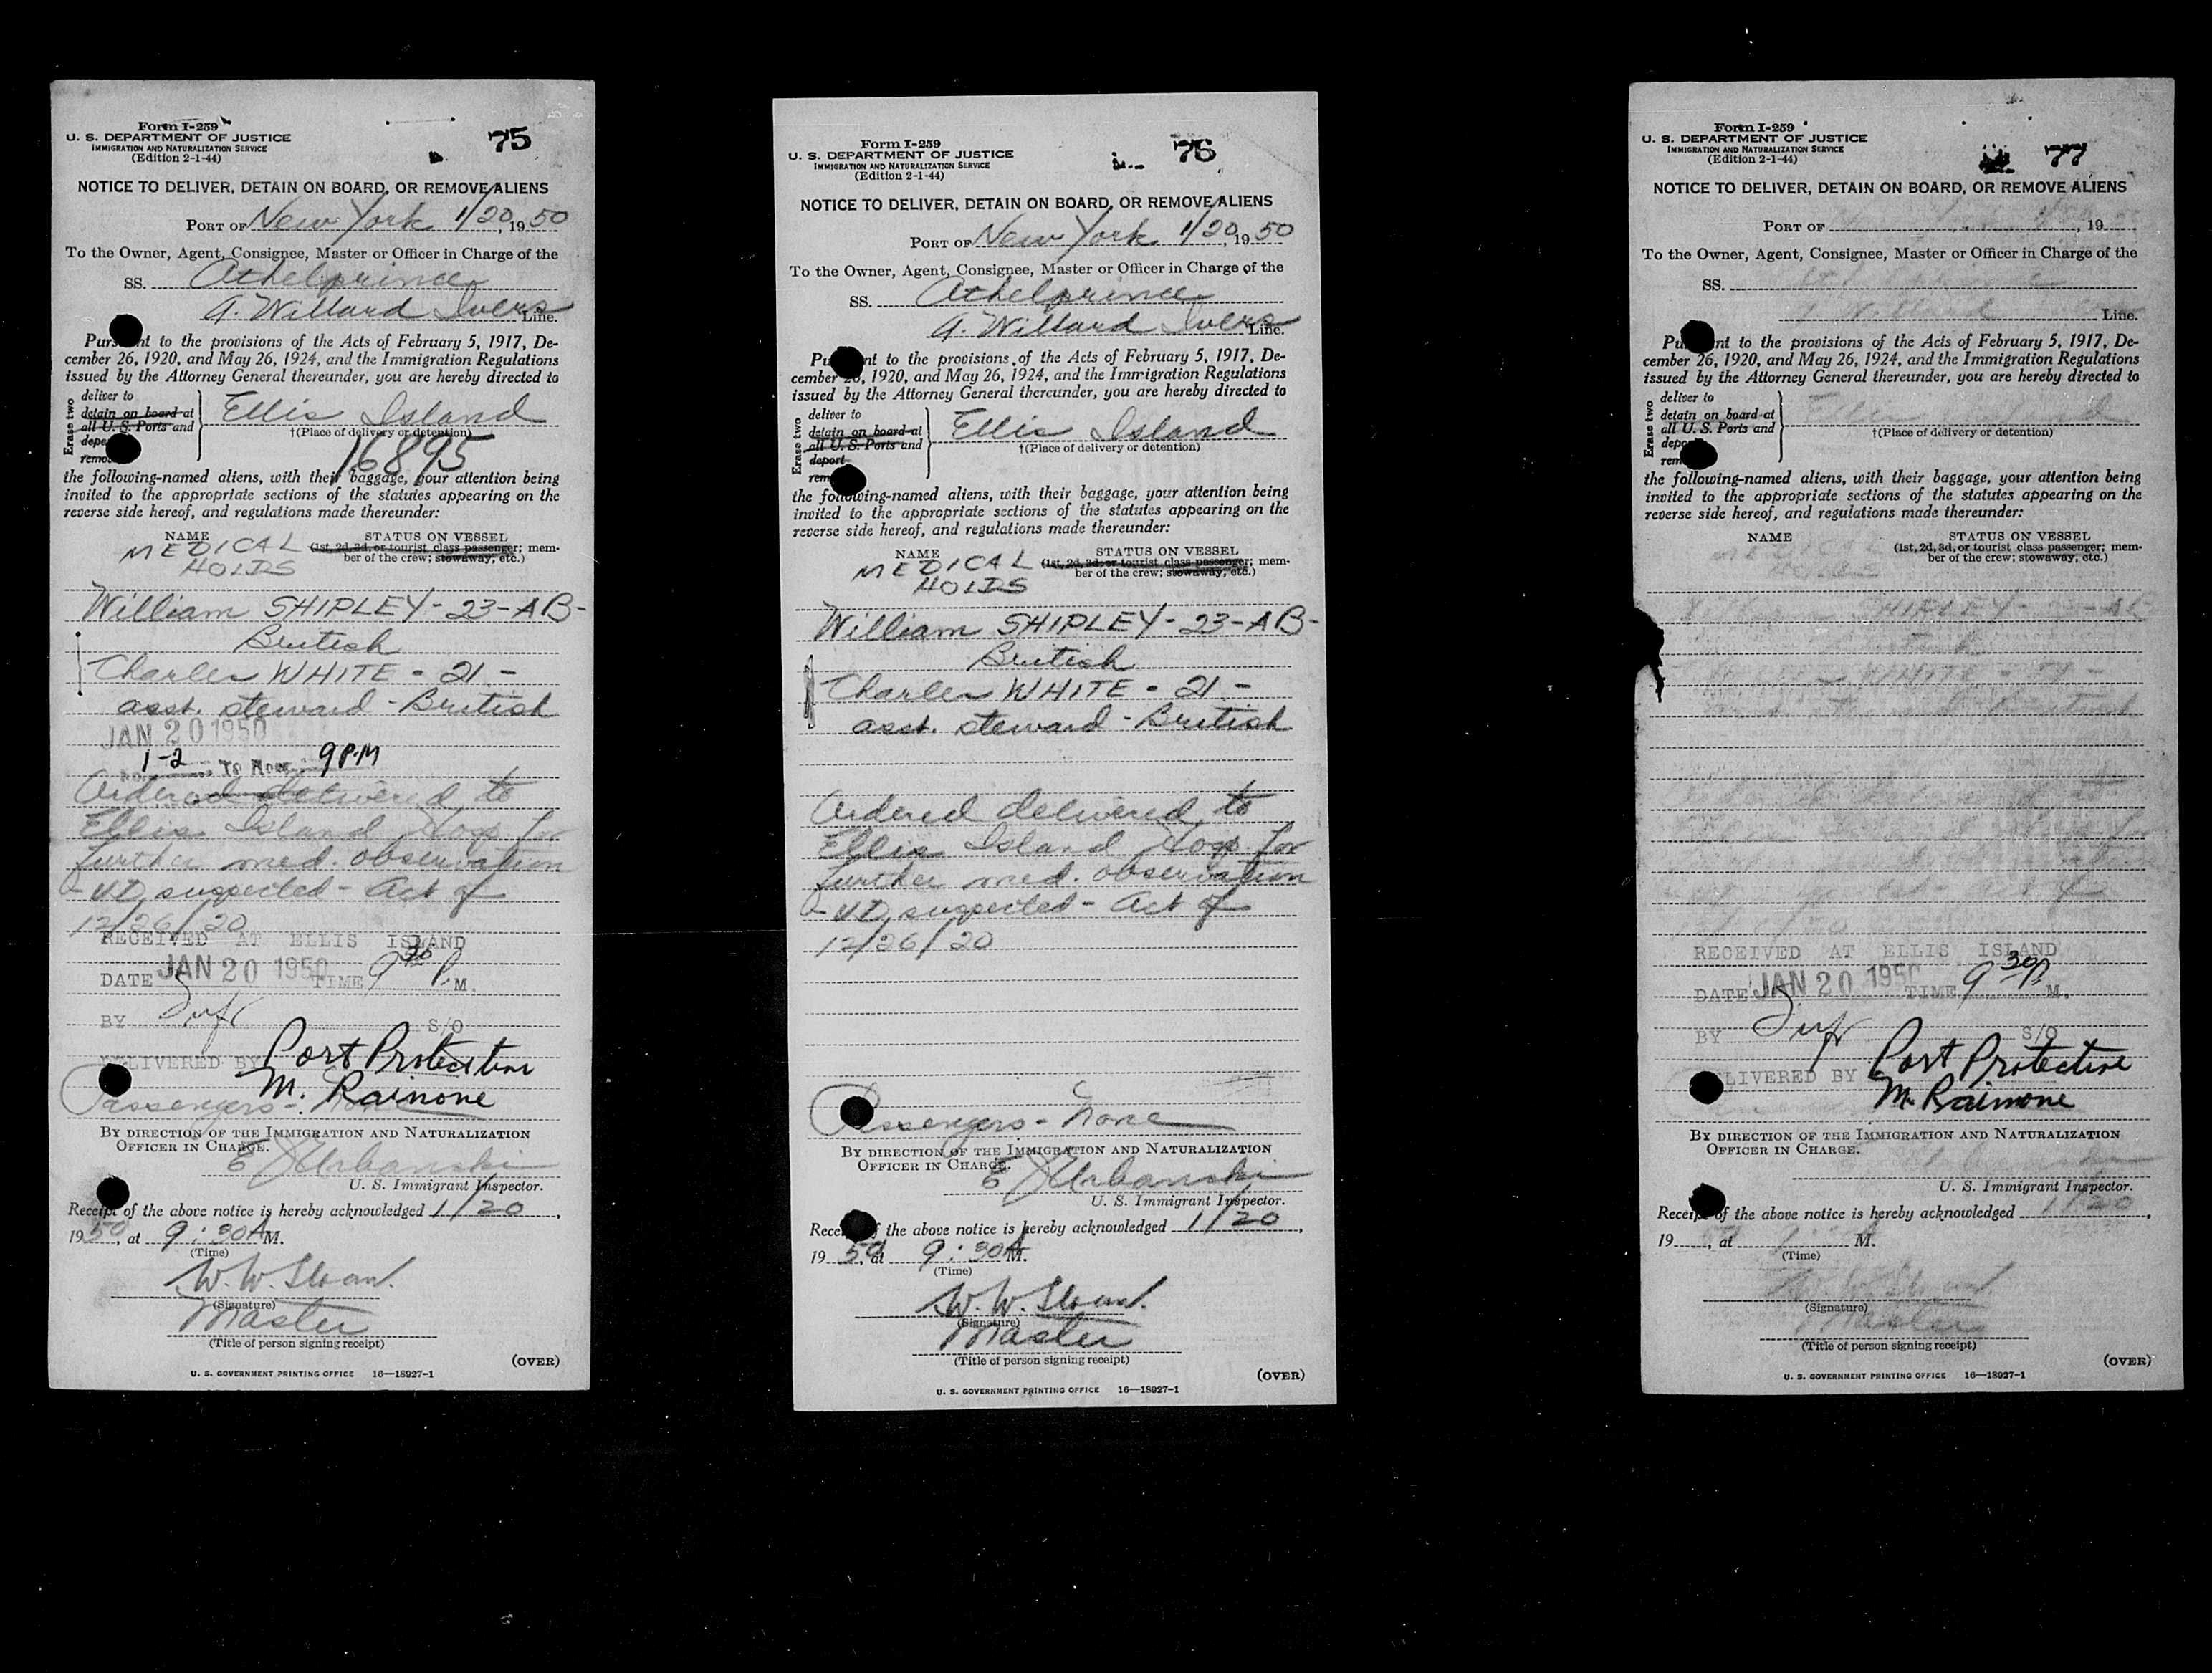 Form I-259
U. S. DEPARTMENT OF JUSTICE
IMMIGRATION AND NATURALIZATION SERVICE
(Edition 2-1-44)
75
NOTICE TO DELIVER, DETAIN ON BOARD, OR REMOVE ALIENS
PORT OF New York 1/20, 1950
To the Owner, Agent, Consignee, Master or Officer in Charge of the
SS. Athelprince
A. Willard Ivers Line.
Pursuant to the provisions of the Acts of February 5, 1917, De-
cember 26, 1920, and May 26, 1924, and the Immigration Regulations
issued by the Attorney General thereunder, you are hereby directed to
Erase two
deliver to
detain on board at
all U. S. Ports and
Ellis Island
†(Place of delivery or detention)
16895
the following-named aliens, with their baggage, your attention being
invited to the appropriate sections of the statutes appearing on the
reverse side hereof, and regulations made thereunder:
NAME STATUS ON VESSEL
MEDICAL (1st, 2d, 3d, or tourist class passenger; mem-
HOLDS ber of the crew; stowaway, etc.)
William SHIPLEY - 23 - AB -
British
Charles WHITE - 21 -
asst. steward - British
JAN 20 1950
1-2 To Acc. 9 PM
Ordered delivered to
Ellis Island Hosp for
further med. observation
- VD suspected - Act of
12/26/20
RECEIVED AT ELLIS ISLAND
DATE JAN 20 1950 TIME 9 30 P M.
BY S/O
DELIVERED BY Port Protective
M. Rainone
Passengers - None
BY DIRECTION OF THE IMMIGRATION AND NATURALIZATION
OFFICER IN CHARGE.
E J Urbanski
U. S. Immigrant Inspector.
Receipt of the above notice is hereby acknowledged 1/20,
1950, at 9:30 A M.
(Time)
W. W. Sloan.
(Signature)
Master
(Title of person signing receipt)
(OVER)
U. S. GOVERNMENT PRINTING OFFICE 16—18927-1
Form I-259
U. S. DEPARTMENT OF JUSTICE
IMMIGRATION AND NATURALIZATION SERVICE
(Edition 2-1-44)
76
NOTICE TO DELIVER, DETAIN ON BOARD, OR REMOVE ALIENS
PORT OF New York 1/20, 1950
To the Owner, Agent, Consignee, Master or Officer in Charge of the
SS. Athelprince
A. Willard Ivers Line.
Pursuant to the provisions of the Acts of February 5, 1917, De-
cember 26, 1920, and May 26, 1924, and the Immigration Regulations
issued by the Attorney General thereunder, you are hereby directed to
Erase two
deliver to
detain on board at
all U. S. Ports and
deport
Ellis Island
†(Place of delivery or detention)
the following-named aliens, with their baggage, your attention being
invited to the appropriate sections of the statutes appearing on the
reverse side hereof, and regulations made thereunder:
NAME STATUS ON VESSEL
MEDICAL (1st, 2d, 3d, or tourist class passenger; mem-
HOLDS ber of the crew; stowaway, etc.)
William SHIPLEY - 23 - AB -
British
Charles WHITE - 21 -
asst. steward - British
Ordered delivered to
Ellis Island Hosp for
further med. observation
- VD suspected - Act of
12/26/20
Passengers - None
BY DIRECTION OF THE IMMIGRATION AND NATURALIZATION
OFFICER IN CHARGE.
E J Urbanski
U. S. Immigrant Inspector.
Receipt of the above notice is hereby acknowledged 1/20,
1950, at 9:30 A M.
(Time)
W. W. Sloan.
(Signature)
Master
(Title of person signing receipt)
(OVER)
U. S. GOVERNMENT PRINTING OFFICE 16—18927-1
Form I-259
U. S. DEPARTMENT OF JUSTICE
IMMIGRATION AND NATURALIZATION SERVICE
(Edition 2-1-44)
77
NOTICE TO DELIVER, DETAIN ON BOARD, OR REMOVE ALIENS
PORT OF , 19
To the Owner, Agent, Consignee, Master or Officer in Charge of the
SS.
Line.
Pursuant to the provisions of the Acts of February 5, 1917, De-
cember 26, 1920, and May 26, 1924, and the Immigration Regulations
issued by the Attorney General thereunder, you are hereby directed to
Erase two
deliver to
detain on board at
all U. S. Ports and
Ellis Island
†(Place of delivery or detention)
the following-named aliens, with their baggage, your attention being
invited to the appropriate sections of the statutes appearing on the
reverse side hereof, and regulations made thereunder:
NAME STATUS ON VESSEL
MEDICAL (1st, 2d, 3d, or tourist class passenger; mem-
ber of the crew; stowaway, etc.)
SHIPLEY - 23 - AB
WHITE - 21 -
RECEIVED AT ELLIS ISLAND
DATE JAN 20 1950 TIME 9 30 P M.
BY S/O
DELIVERED BY Port Protective
M. Rainone
BY DIRECTION OF THE IMMIGRATION AND NATURALIZATION
OFFICER IN CHARGE.
U. S. Immigrant Inspector.
Receipt of the above notice is hereby acknowledged 1/20,
19 , at M.
(Time)
W. W. Sloan
(Signature)
Master
(Title of person signing receipt)
(OVER)
U. S. GOVERNMENT PRINTING OFFICE 16—18927-1